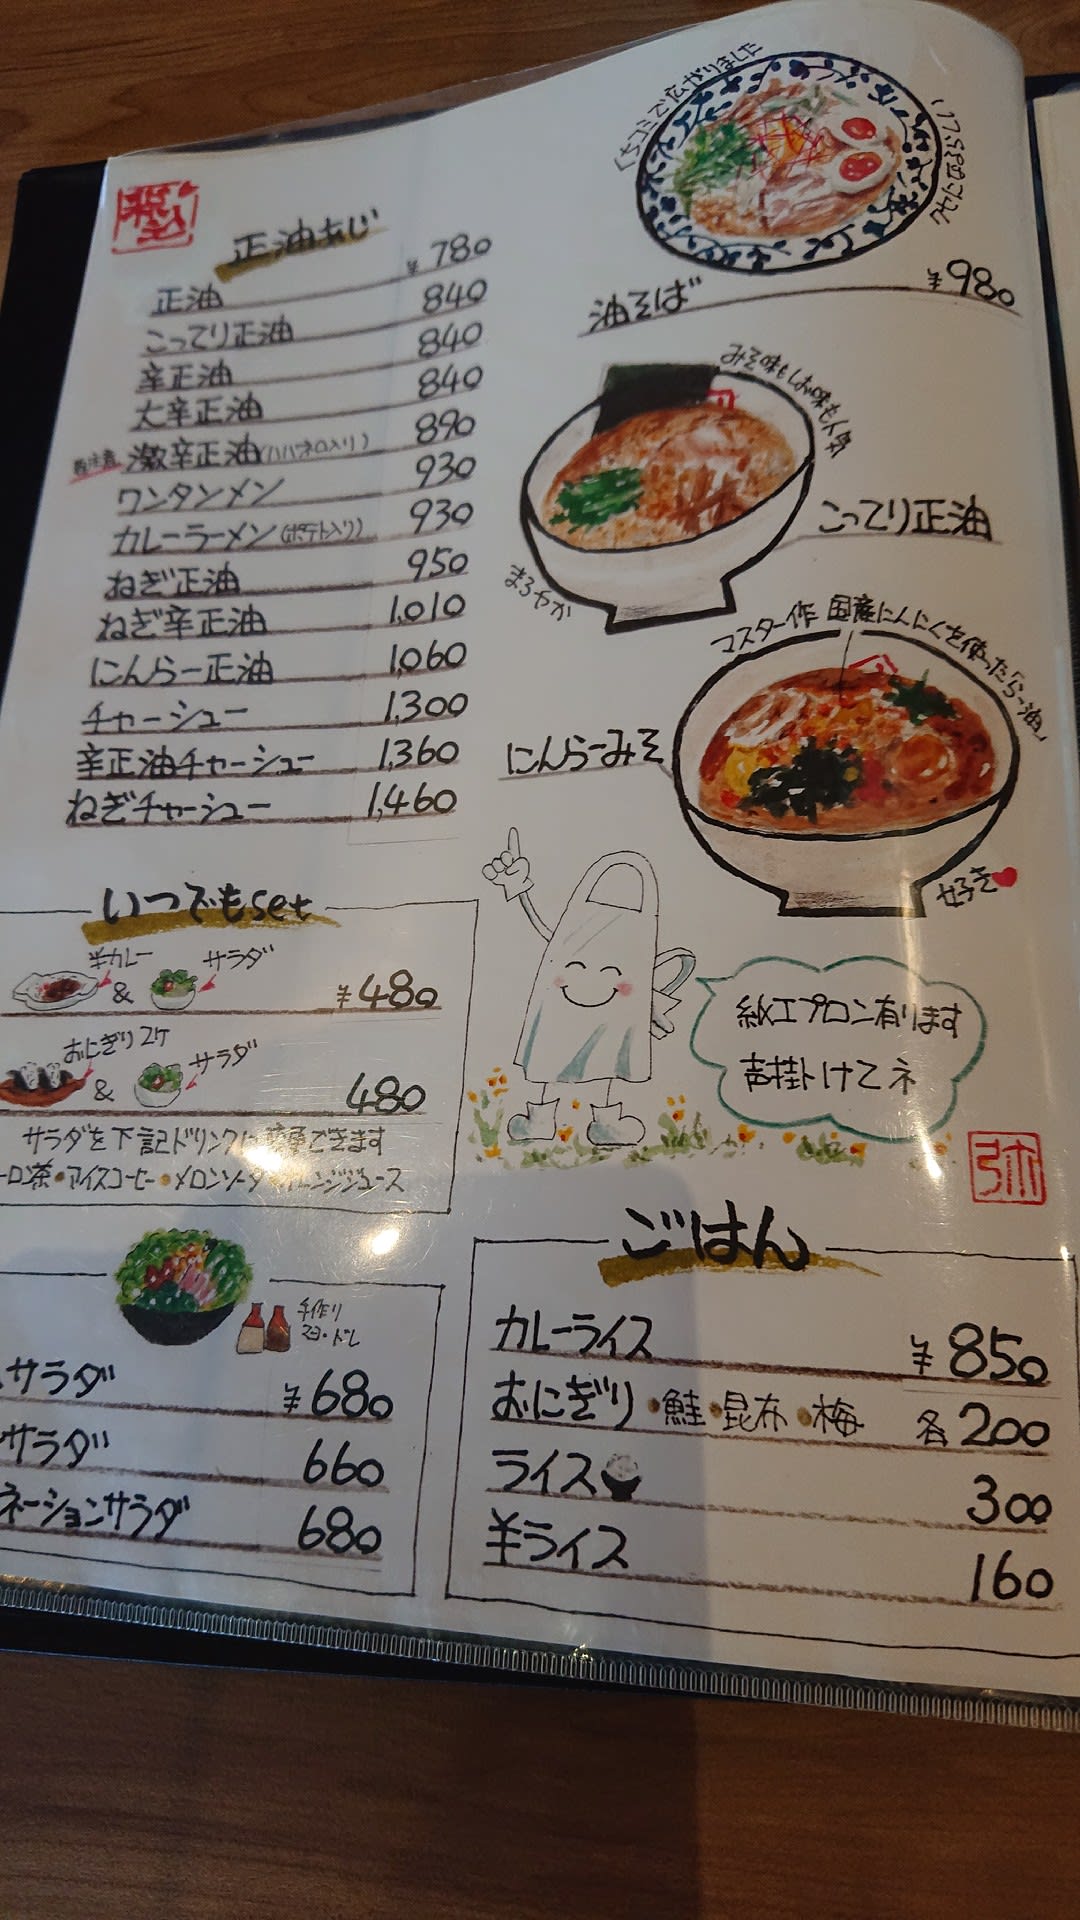 正油あじ
正油 ¥780
こってり正油 840
辛正油 840
大辛正油 840
激辛正油(ハバネロ入り) 890
ワンタンメン 930
カレーラーメン(ポテト入り) 930
ねぎ正油 950
ねぎ辛正油 1,010
にんらー正油 1,060
チャーシュー 1,300
辛正油チャーシュー 1,360
ねぎチャーシュー 1,460
クチコミで広がりました
油そば ¥980
みそ味もしお味も人気
こってり正油
まろやか
マスター作 国産にんにくを使った「らー油」
にんらーみそ
好き
いつでもset
半カレー & サラダ ¥480
おにぎり2ケ & サラダ 480
サラダを下記ドリンクに できます
ーロン茶•アイスコーヒー•メロンソーダ•オレンジジュース
紙エプロン有ります
声掛けてネ
弥
手作り
マヨ・ドレ
サラダ ¥680
サラダ 660
ネーションサラダ 680
ごはん
カレーライス ¥850
おにぎり•鮭•昆布•梅 各200
ライス 300
半ライス 160